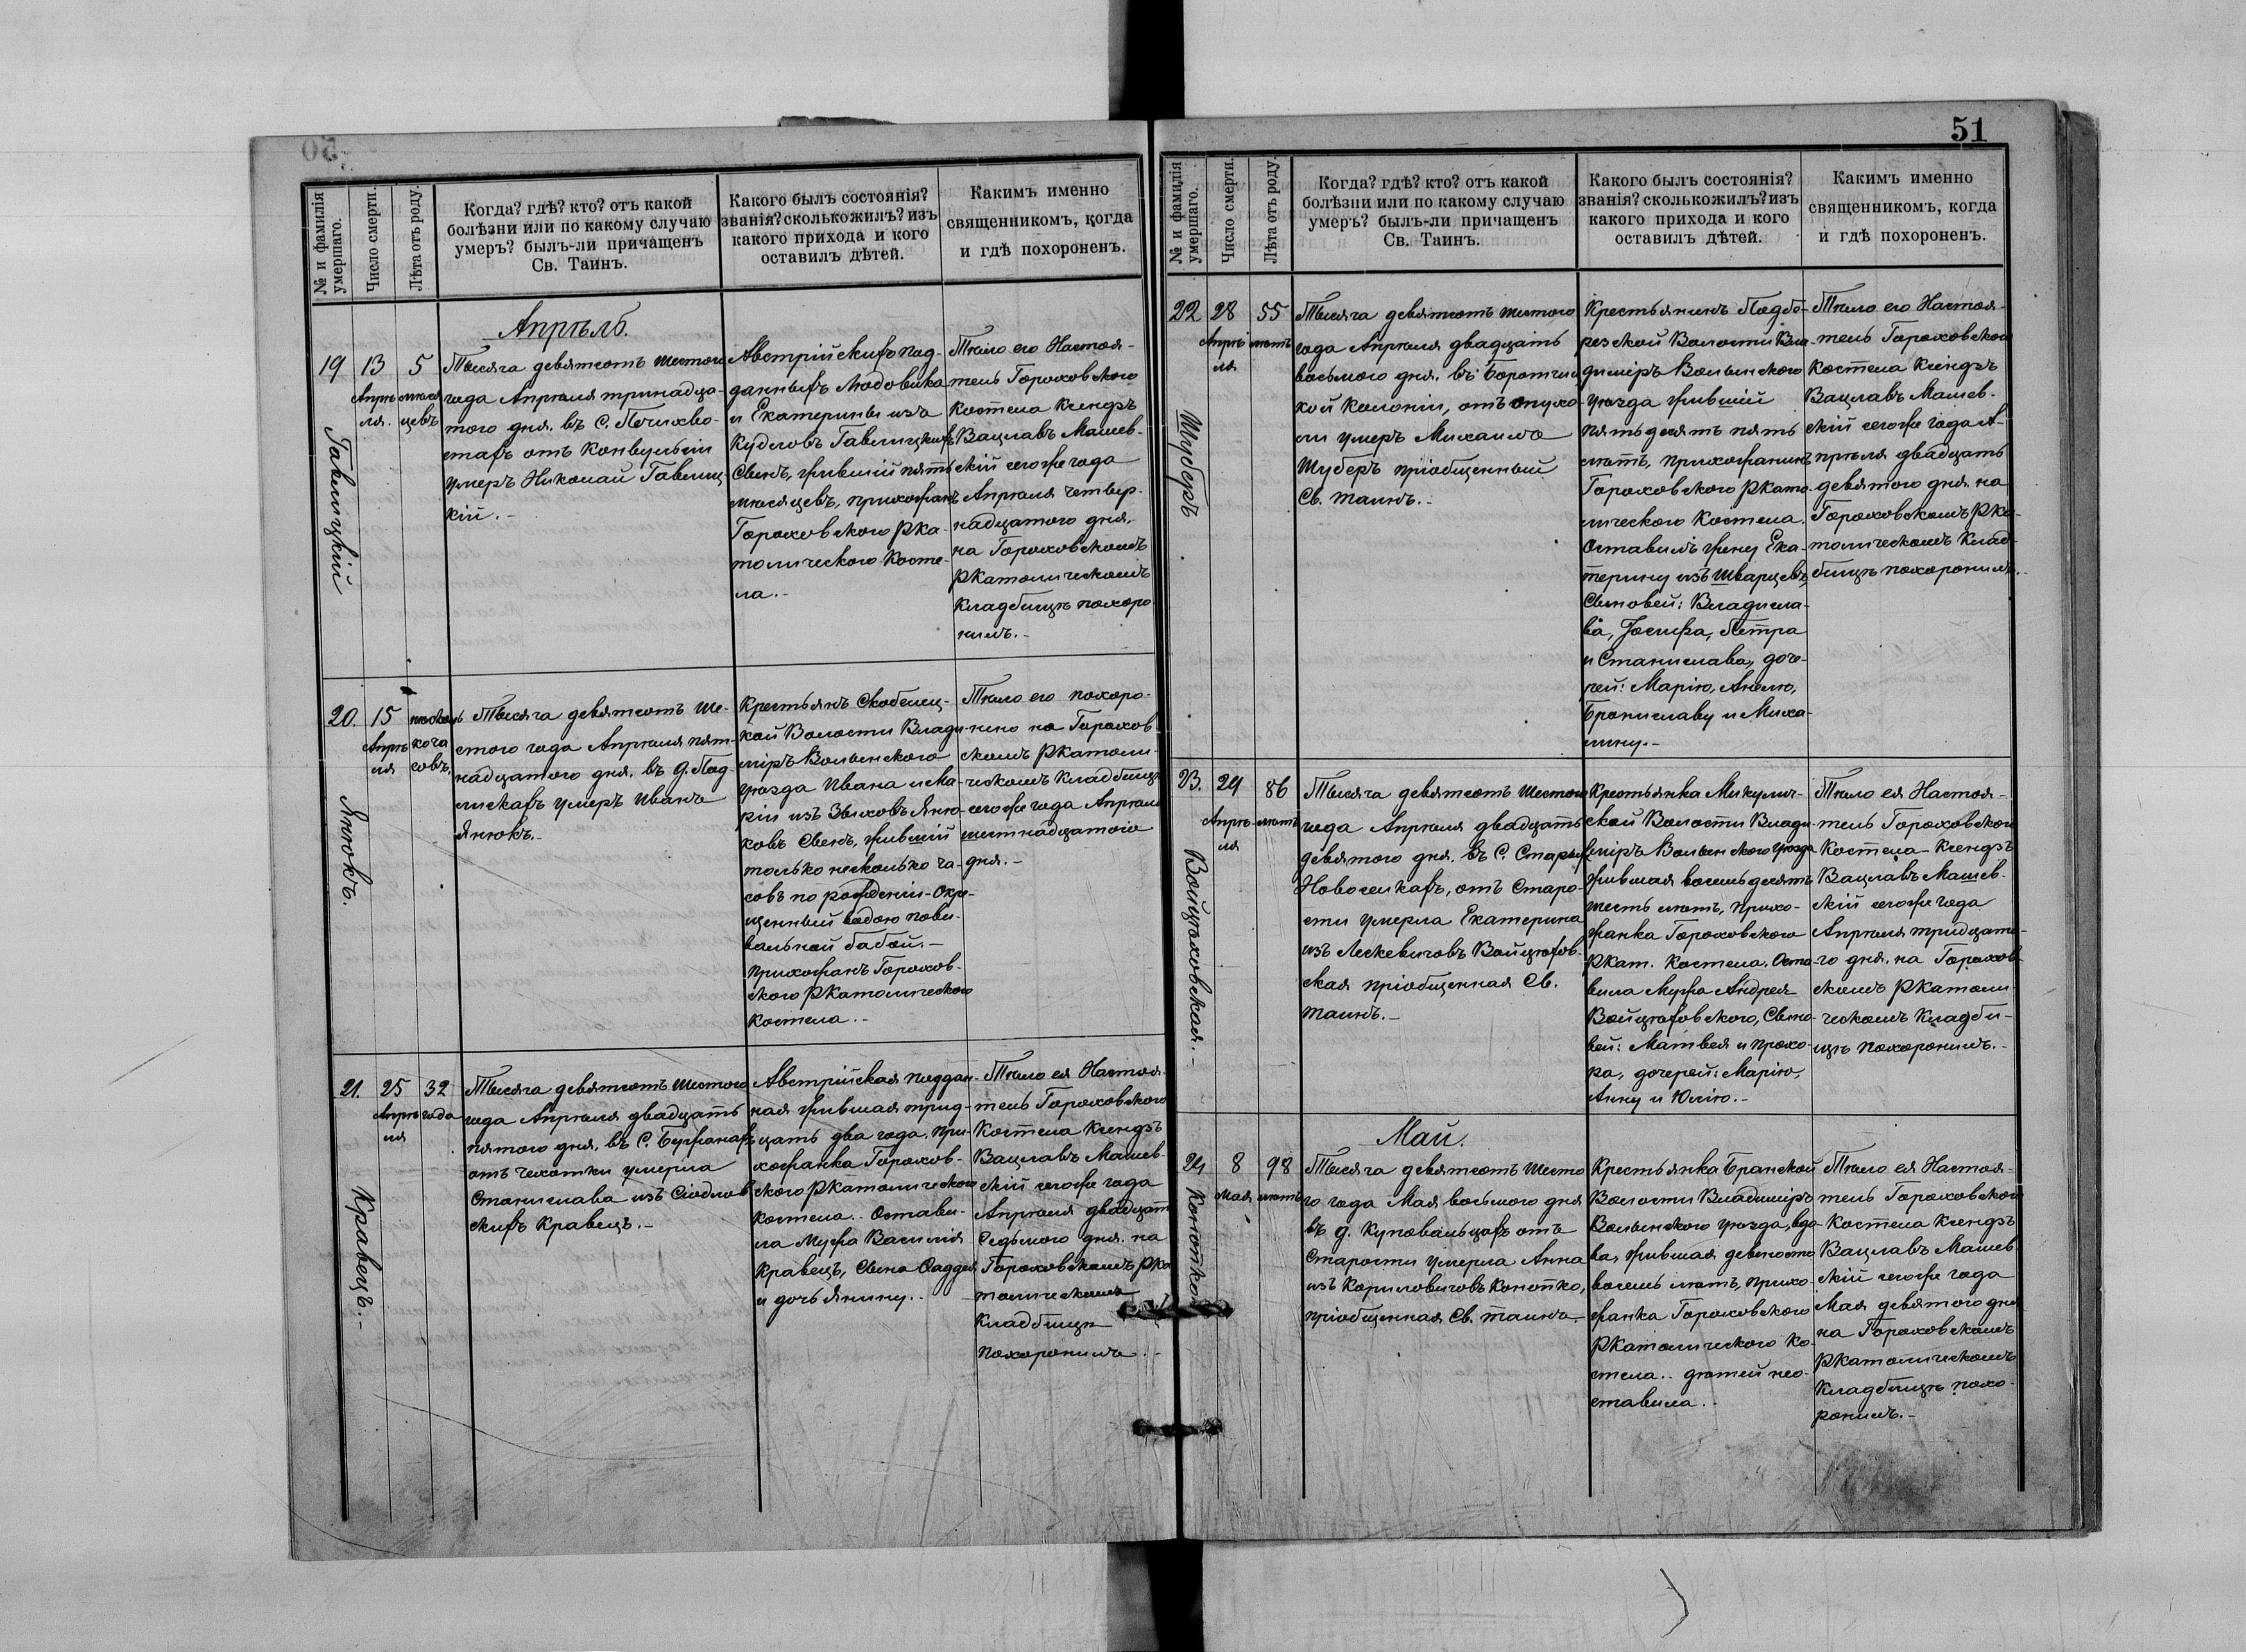 51
№ и фамилія умершаго.
Число смерти.
Лѣта отъ роду.
Когда? гдѣ? кто? отъ какой
болѣзни или по какому случаю
умеръ? былъ-ли причащенъ
Св. Таинъ.
Какого былъ состоянія?
званія? сколько жилъ? изъ
какого прихода и кого
оставилъ дѣтей.
Какимъ именно
священникомъ, когда
и гдѣ похороненъ.
Апрѣль.
19
Гавлицкій
13
Апрѣ-
ля.
5
мѣся-
цевъ
Тысяча девятьсотъ шестого
года Апрѣля тринадца-
того дня. въ С.
отъ Конвульсіи
умеръ Николай Гавлиц-
кій.-
Австрійскихъ под-
данныхъ Людовика
и Екатерины изъ
Гавлицкихъ
Сынъ, жившій пять
мѣсяцевъ, прихожанъ
Гороховского Рка-
толического Косте-
ла.-
Тѣло его Настоя-
тель Гороховского
Костела Ксендзъ
Вацлавъ Машев-
скій сегоже года
Апрѣля четыр-
надцатого дня.
на Гороховскомъ
Ркатолическомъ
Кладбищѣ похоро-
нилъ.-
20.
Янюкъ.
15
Апрѣ-
ля
нѣсколь
ко ча
совъ.
Тысяча девятьсотъ ше-
стого года Апрѣля пят-
надцатого дня. въ д. Под-
лискахъ умеръ Иванъ
Янюкъ.-
Крестьянъ Скобелец-
кой Волости Влади-
міръ Волынского
уѣзда Ивана и Ма-
ріи изъ Зыховъ Яню-
ковъ Сынъ, жившій
только несколько ча-
совъ по рожденіи-Окре-
щенный водою пови-
вальной бабой.-
прихожанъ Горохов-
ского Ркатолического
Костела.-
Тѣло его похоро-
нено на Горохов-
скомъ Ркатоли-
ческомъ Кладбищѣ
сегоже года Апрѣля
шестнадцатого
дня.-
21.
Кравецъ.-
25
Апрѣ-
ля
32
года
Тысяча девятьсотъ шестого
года Апрѣля двадцать
пятого дня. въ С. Бужанахъ
отъ чехотки умерла
Станислава изъ Сіодлов-
скихъ Кравецъ.-
Австрійская поддан-
ная жившая трид-
цать два года, при-
хожанка Горохов-
ского Ркатолического
Костела.. Остави-
ла Мужа Василія
Кравецъ, Сына Фаддея
и дочь Янину..
Тѣло ея Настоя-
тель Гороховского
Костела Ксендзъ
Вацлавъ Машев-
скій сегоже года
Апрѣля двадцать
Седьмого дня. на
Гороховскомъ Рка
толическомъ
Кладбищѣ
похоронилъ.-
№ и фамилія умершаго.
Число смерти.
Лѣта отъ роду.
Когда? гдѣ? кто? отъ какой
болѣзни или по какому случаю
умеръ? былъ-ли причащенъ
Св. Таинъ.
Какого былъ состоянія?
званія? сколько жилъ? изъ
какого прихода и кого
оставилъ дѣтей.
Какимъ именно
священникомъ, когда
и гдѣ похороненъ.
22
Шуберъ
28
Апрѣ
ля
55
лѣтъ
Тысяча девятьсотъ шестого
года Апрѣля двадцать
восьмого дня. въ
кой колоніи, отъ опухо-
ли умеръ Михаилъ
Шуберъ пріобщенный
Св. таинъ.-
Крестьянинъ Подбе-
резской Волости Вла-
диміръ Волынского
уѣзда жившій
пятьдесятъ пять
лѣтъ, прихожанинъ
Гороховского Ркато-
лического Костела.
Оставилъ жену Ека-
терину изъ Шварцевъ,
Сыновей: Владисла-
ва, Іосифа, Петра
и Станислава, доче-
рей: Марію, Анелю,
Брониславу и Миха-
лину.-
Тѣло его Настоя-
тель Гороховского
Костела Ксендзъ
Вацлавъ Машев-
скій сегоже года А-
прѣля двадцать
девятого дня. на
Гороховскомъ Рка-
толическомъ Клад-
бищѣ похоронилъ.-
23.
Войцѣховская.-
29
Апрѣ-
ля
86
лѣтъ
Тысяча девятьсотъ шестого
года Апрѣля двадцать
девятого дня. въ С. Старыхъ
Новоселкахъ, отъ Старо-
сти умерла Екатерина
изъ Лескевичовъ Войцѣхов-
ская пріобщенная Св.
таинъ.-
Крестьянка Микулин-
ской Волости Влади-
міръ Волынского уѣзда
жившая восемьдесятъ
шесть лѣтъ, прихо-
жанка Гороховского
Ркат. Костела. Оста-
вила Мужа Андрея
Войцѣховского, Сыно-
вей: Матвея и Прохо-
ра, дочерей: Марію,
Анну и Юлію.-
Тѣло ея Настоя-
тель Гороховского
Костела-Ксендзъ
Вацлавъ Машев-
скій сегоже года
Апрѣля тридцато-
го дня. на Горохов-
скомъ Ркатоли-
ческомъ Кладби-
щѣ похоронилъ.-
Май.
24
Конопко
8
Мая
98
лѣтъ
Тысяча девятьсотъ шесто
го года Мая восьмого дня
въ д. Куповальцахъ отъ
Старости умерла Анна
изъ Кориловичовъ Конопко,
пріобщенная Св. таинъ.-
Крестьянка Бранской
Волости Владиміръ
Волынского уѣзда, вдо-
ва, жившая девяносто
восемь лѣтъ, прихо-
жанка Гороховского
Ркатолического Ко-
стела.. дѣтей нео-
ставила.-
Тѣло ея Настоя-
тель Гороховского
Костела Ксендзъ
Вацлавъ Машев-
скій сегоже года
Мая девятого дня
на Гороховскомъ
Ркатолическомъ
Кладбищѣ похо-
ронилъ.-